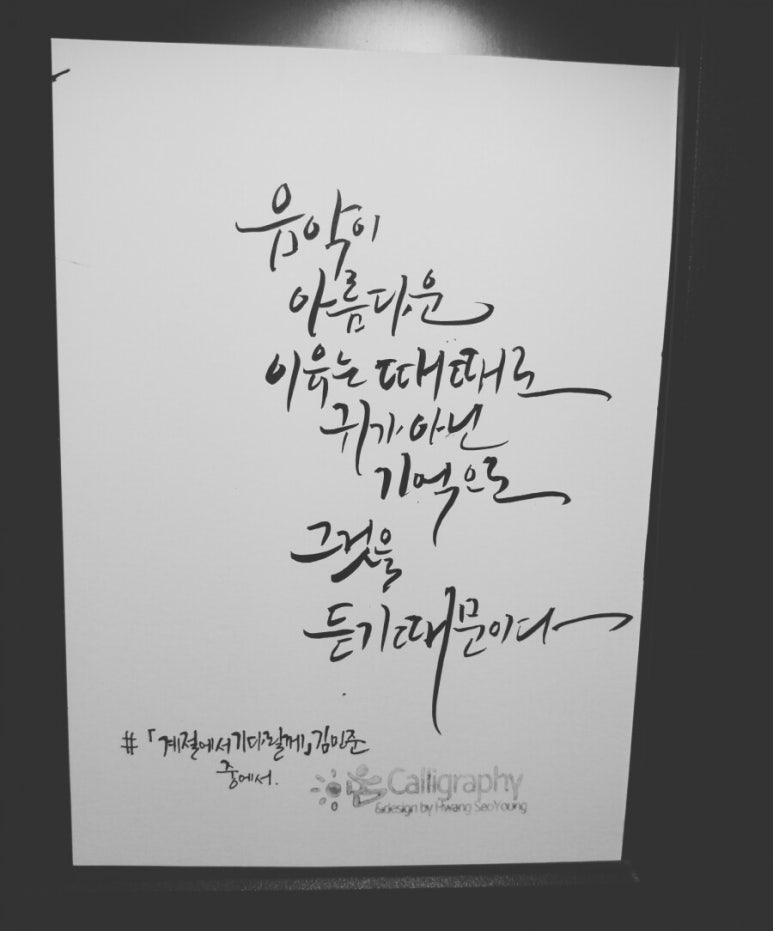 음악이
아름다운
이유는 때때로
귀가 아닌
기억으로
그것을
듣기 때문이다
#「계절에서 기다릴게」김민준
중에서.
Calligraphy
&design by Hwang SeoYoung